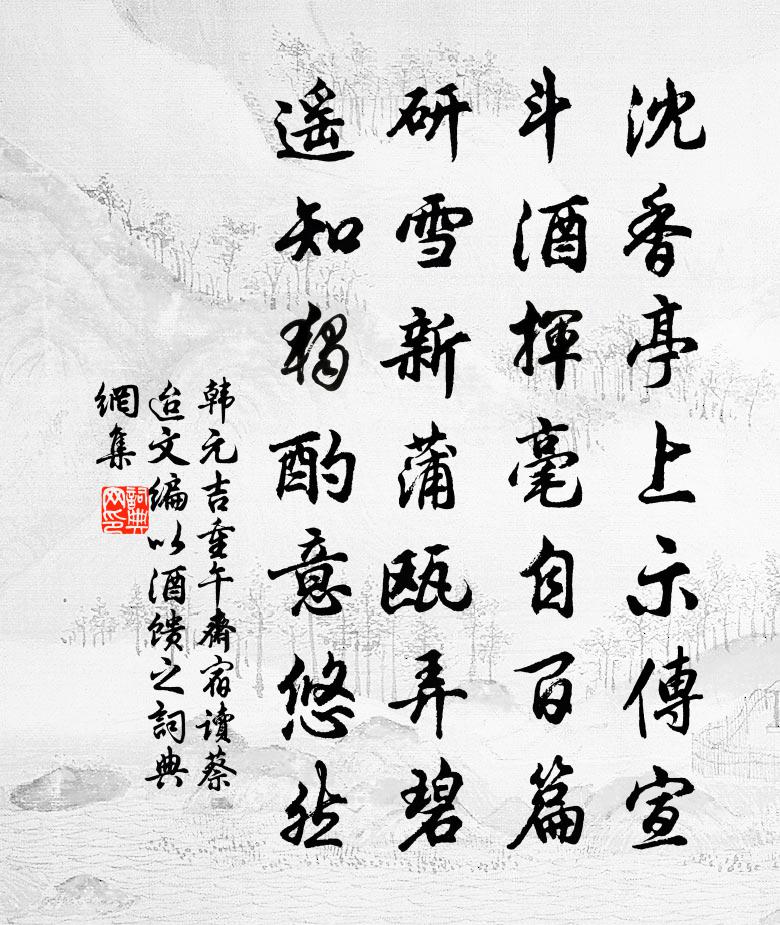 沈香亭上示傳宣
斗酒揮毫自百篇
研雪新蒲瓯弄碧
遥知獨酌意悠然
韩元吉重午齋宿读蔡
迨文编以酒馈之詞典
網集
詞典网印